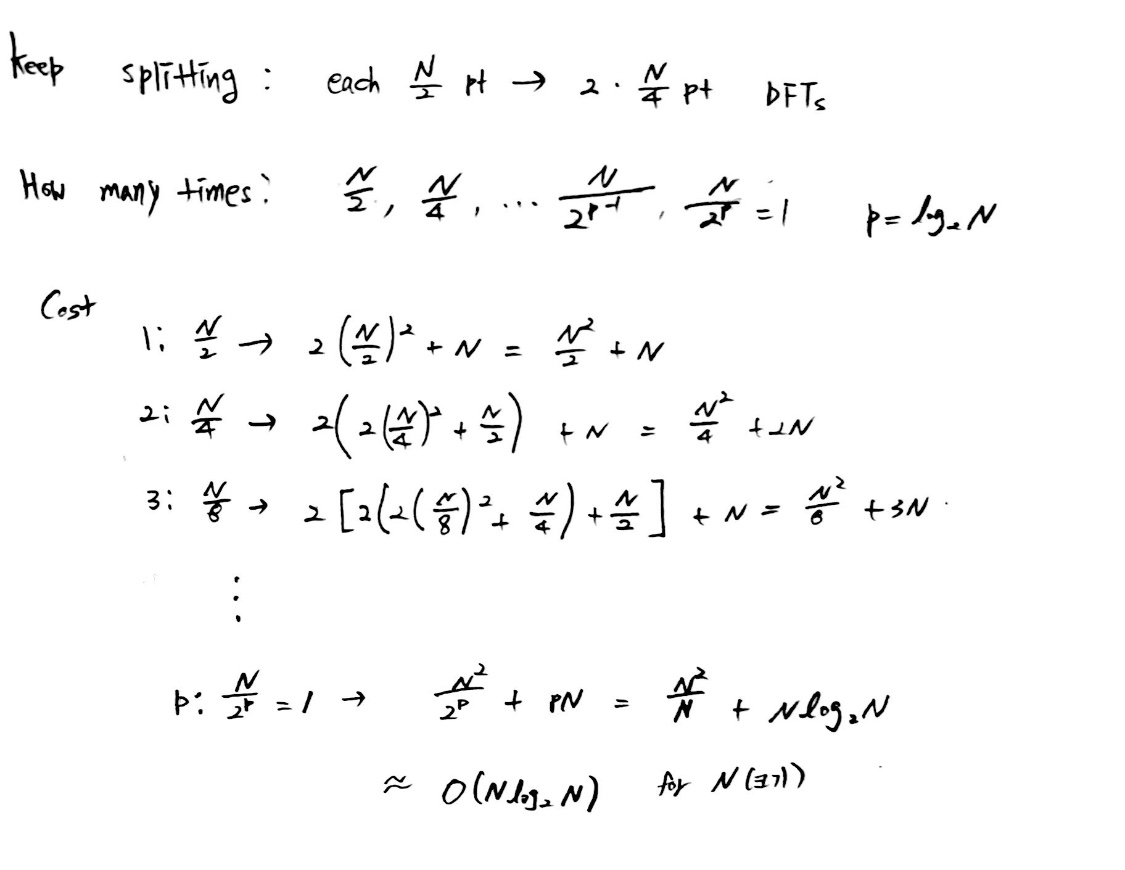 Keep splitting : each N/2 pt → 2 · N/4 pt DFTs
How many times? N/2, N/4, ... N/2^(p-1), N/2^p = 1 p = log₂N
Cost
1: N/2 → 2(N/2)² + N = N²/2 + N
2: N/4 → 2(2(N/4)² + N/2) + N = N²/4 + 2N
3: N/8 → 2[2(2(N/8)² + N/4) + N/2] + N = N²/8 + 3N
⋮
p: N/2^p = 1 → N²/2^p + PN = N²/N + Nlog₂N
≈ O(Nlog₂N) for N(크기)